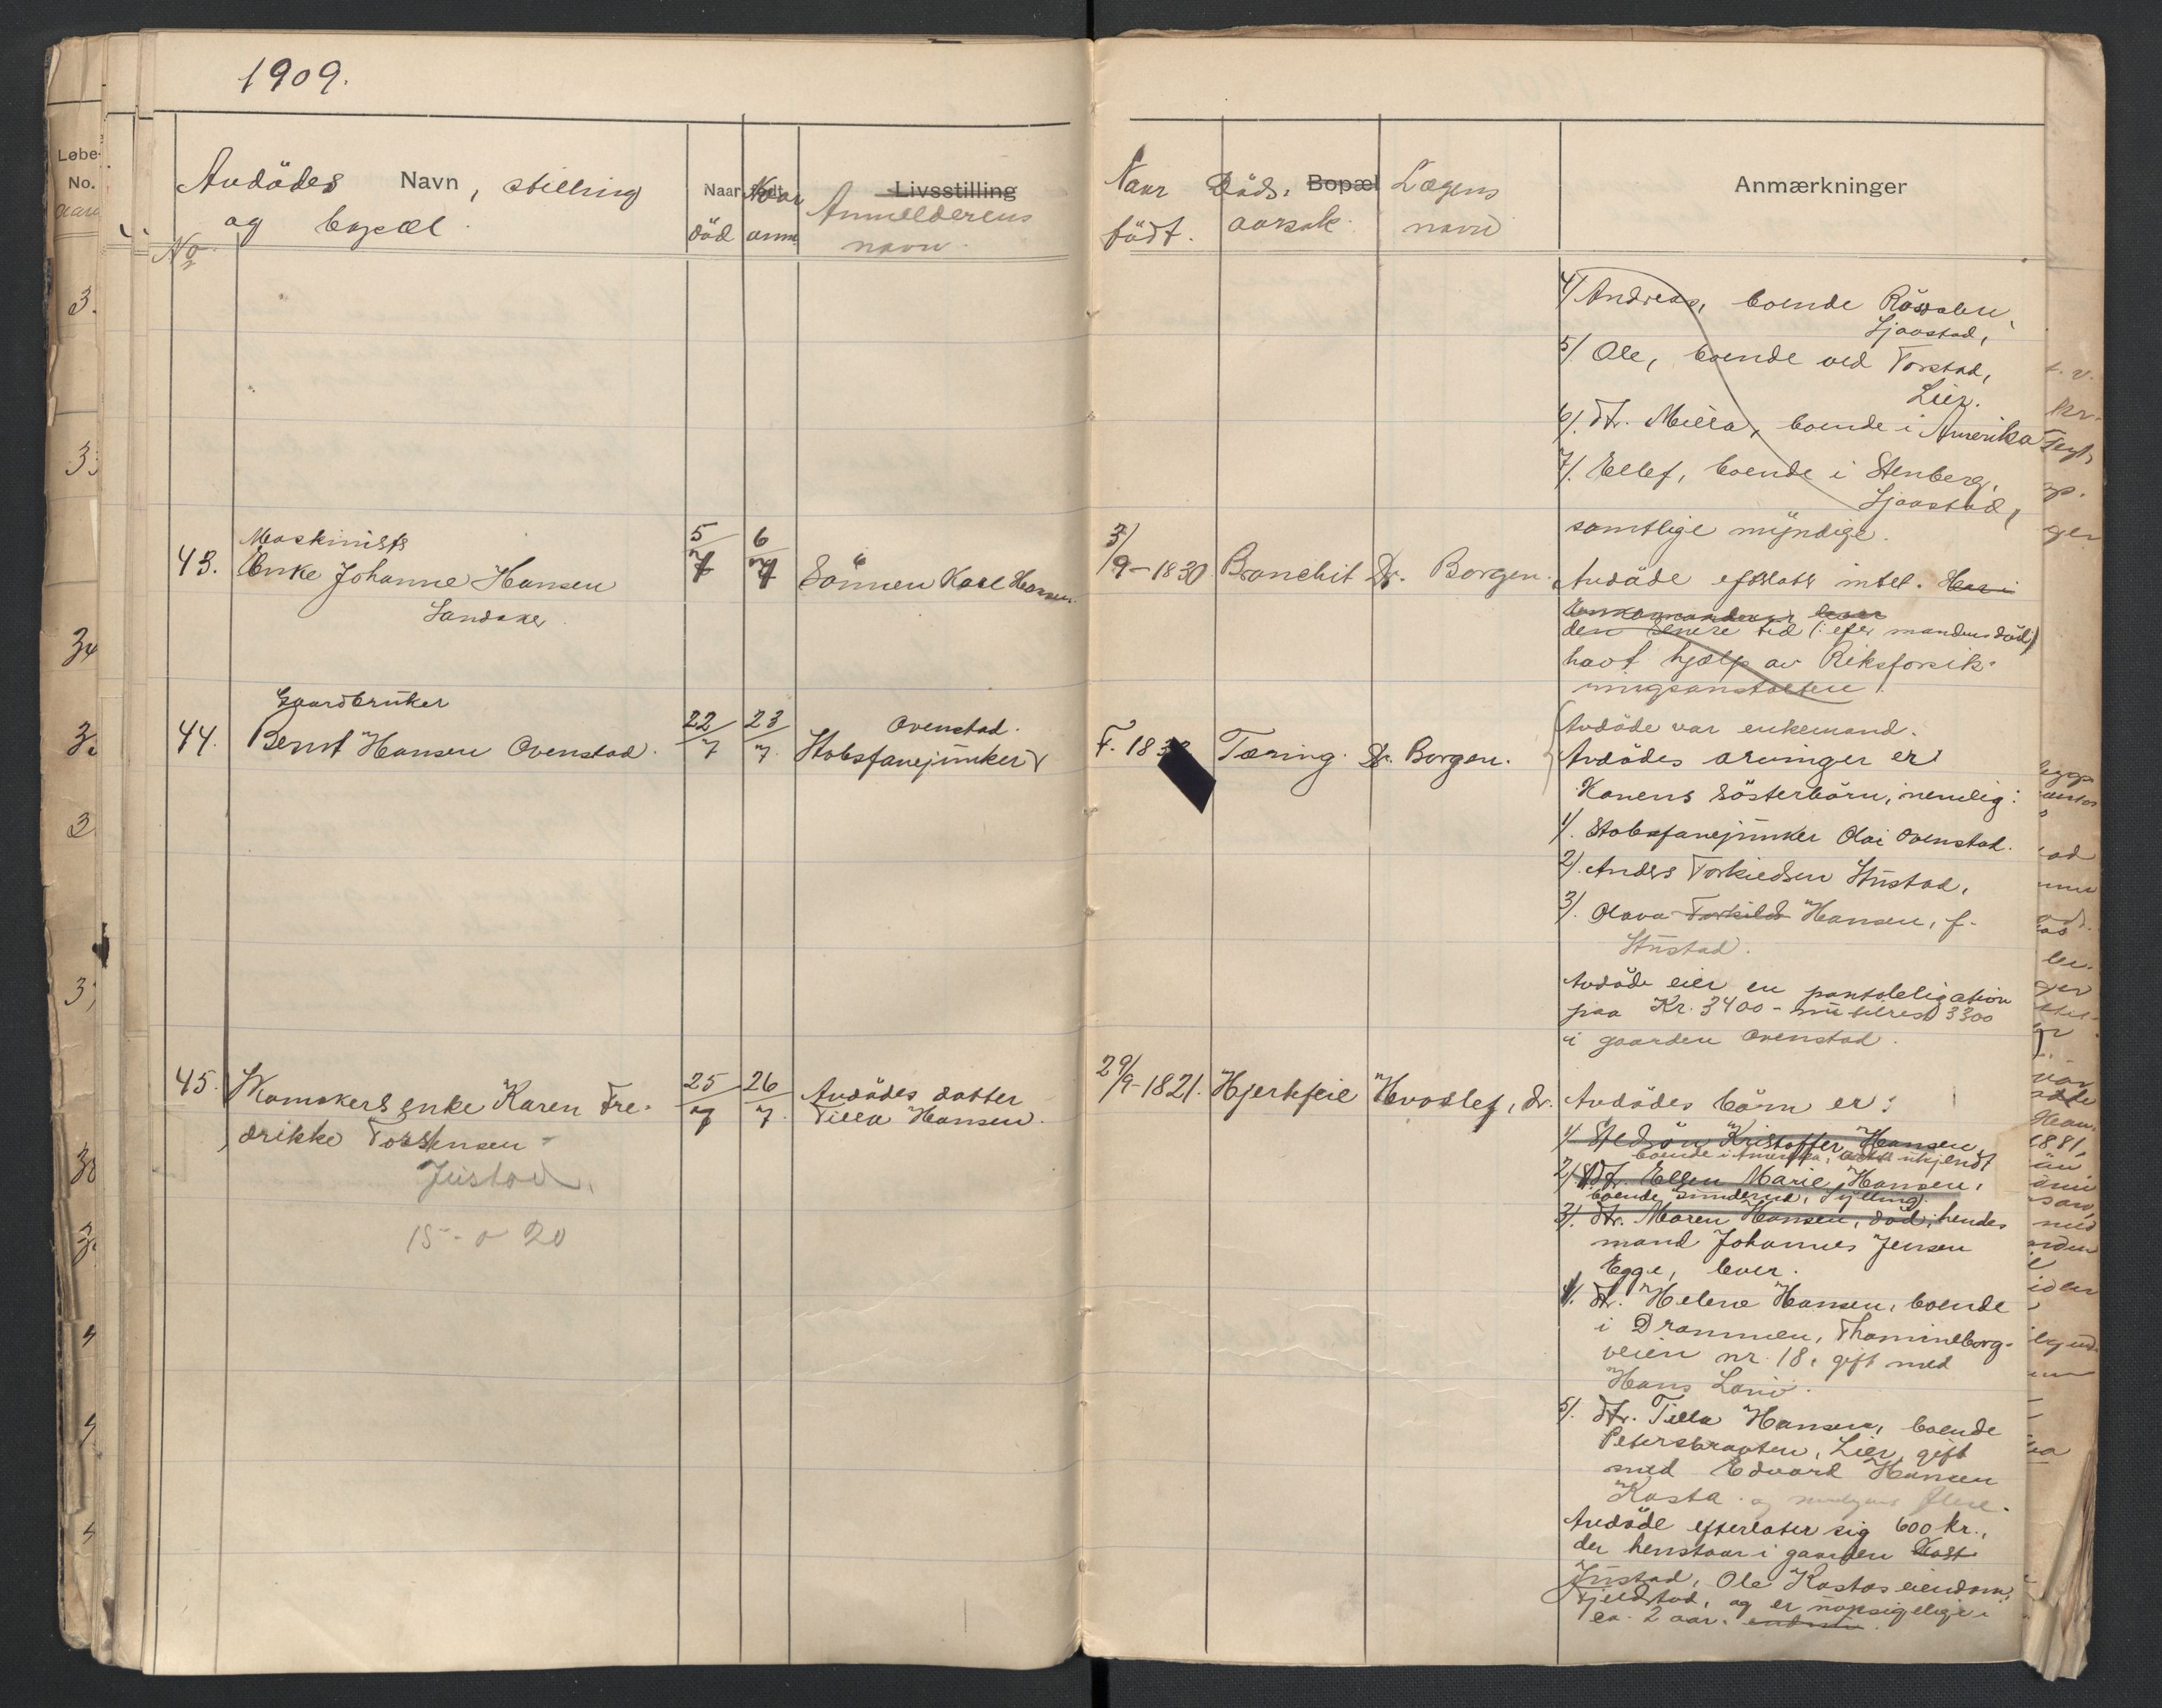 1909.
Løbe-
No.
Avdödes Navn, stilling
og bopæl.
No
Naar född
död
Naar
anm
Livsstilling
Anmelderens
navn.
Naar
född.
Döds-
aarsak.
Bopæl
Lægens
navn
Anmærkninger
4/ Andreas, boende
Sjaastad,
5/ Ole, boende ved Torstad,
Lier.
6/. Dtr. boende i Amerika
7/. Ellef, boende i Stenberg,
Sjaastad,
samtlige myndige.
43.
Maskinists
Enke Johanne Hansen
Landaker
5/7
6/7
Sönnen Karl Hansen.
3/9-1830
Bronchit
Dr. Borgen.
Avdöde efterlatt intet. Har i
den senere tid (: efter mandens död:)
havt hjælp av Riksforsik-
ringsanstalten.
44.
Gaardbruker
Bernt Hansen Ovenstad.
22/7
23/7.
Ovenstad.
Stabsfanejunker
F. 18
Tæring.
Dr. Borgen.
Avdöde var enkemand.
Avdödes arvinger er
Konens Sösterbörn, nemlig:
1/. Stabsfanejunker Olai Ovenstad.
2/. Anders Torkildsen Justad,
3/. Olava Torkilds Hansen, f.
Justad.
Avdöde eier en pantobligation
paa Kr. 3400 - nu tilrest 3300
i gaarden Ovenstad.
45.
Kamakers enke Karen Fre-
drikke Torstensen
Justad.
15 - o 20
25/7
26/7.
Avdödes datter
Tilla Hansen.
29/9-1821.
Hjertefeil
Hvoslef, dr.
Avdödes börn er:
1/ Stedsön Kristoffer Hansen,
boende i Amerika, ukjendt
2/ Dtr. Ellen Marie Hansen,
boende Sylling.
3/. Dtr. Maren Hansen, död, hendes
mand Johannes Jensen
Egge, lever.
4/. Dtr. Helene Hansen, boende
i Drammen, Thamineborg-
veien nr. 18, gift med
Hans
5/. Dtr. Tilla Hansen, boende
Petersbraaten, Lier, gift
med Edvard Hansen
Kasta.
Avdöde efterlater sig 600 kr.,
der henstaar i gaarden Kast
Justad, Ole Kastas eiendom,
Fjeldstad, og er uopsigelige i
ca. 2 aar. endnu.